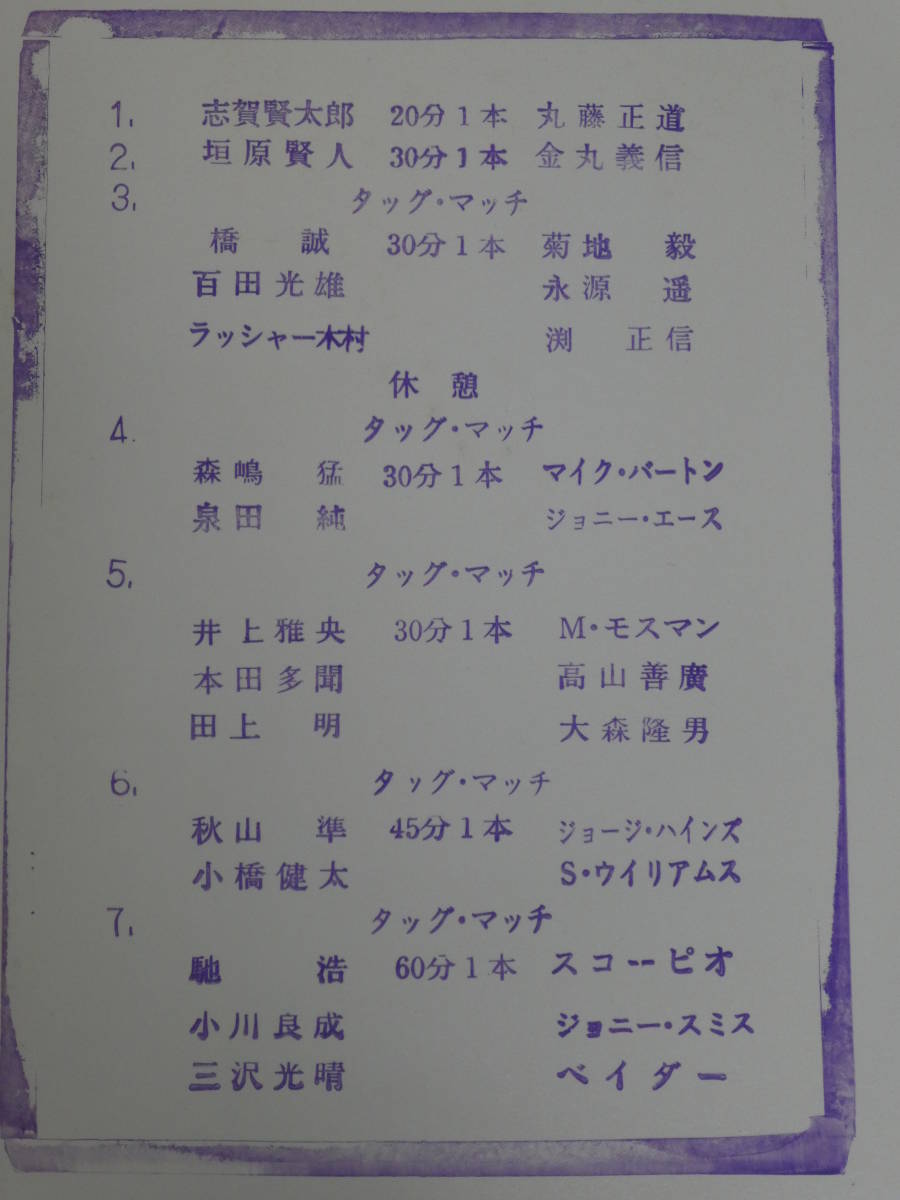 1. 志賀賢太郎 20分1本 丸藤正道
2. 垣原賢人 30分1本 金丸義信
3. タッグ・マッチ
橋 誠 30分1本 菊地 毅
百田光雄 永源 遥
ラッシャー木村 渕 正信
休憩
4. タッグ・マッチ
森嶋 猛 30分1本 マイク・バートン
泉田 純 ジョニー・エース
5. タッグ・マッチ
井上雅央 30分1本 M・モスマン
本田多聞 高山善廣
田上 明 大森隆男
6. タッグ・マッチ
秋山 準 45分1本 ジョージ・ハインズ
小橋健太 S・ウイリアムス
7. タッグ・マッチ
馳 浩 60分1本 スコーピオ
小川良成 ジョニー・スミス
三沢光晴 ベイダー